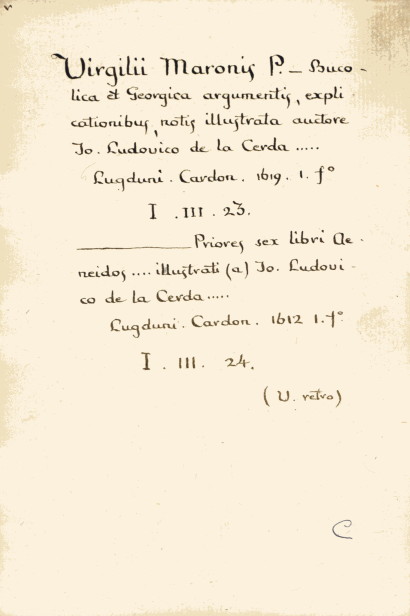 Virgilii Maronis P. – Buco-
lica et Georgica argumentis, expli
cationibus, notis illustrata auctore
Io. Ludovico de la Cerda .....
Lugduni. Cardon. 1619. 1. fº
I. III. 23.
———— Priores sex libri Ae-
neidos .... illustrati (a) Io. Ludovi-
co de la Cerda .....
Lugduni. Cardon. 1612 1. fº
I. III. 24.
(V. retro)
C